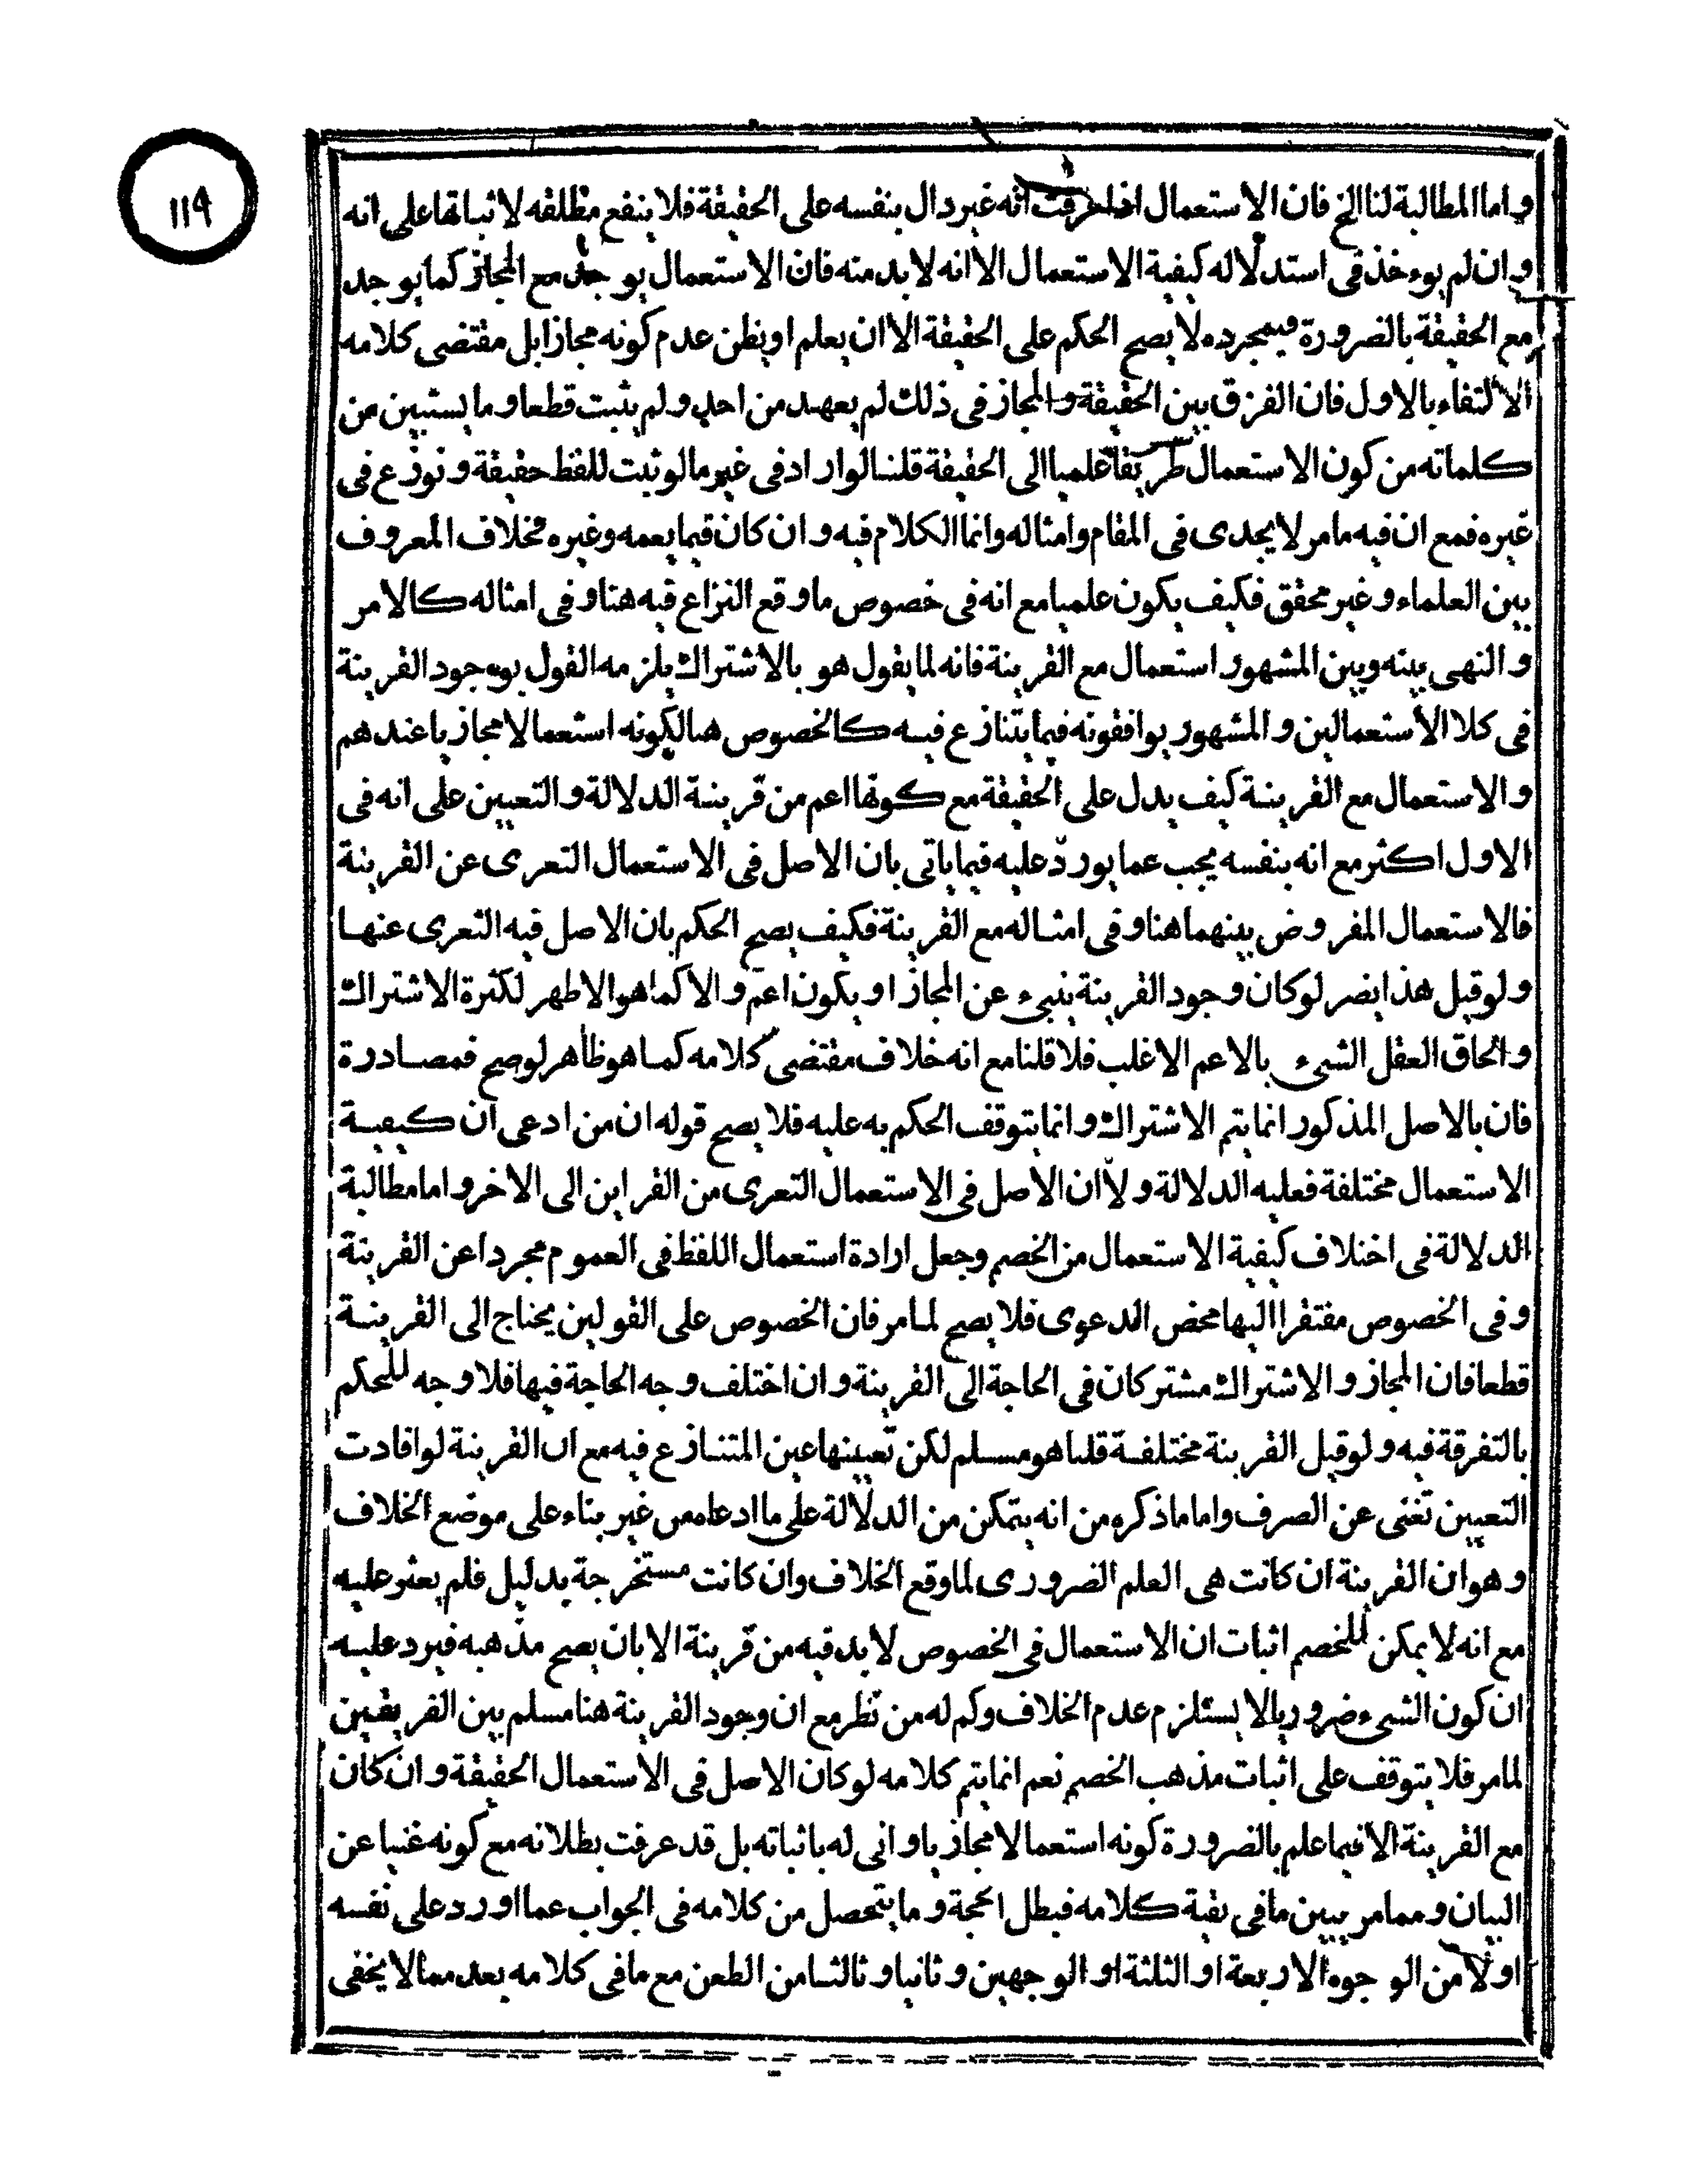 ١١٩
واما المطالبة لنا الخ فان الاستعمال اذا عرفت انه غير دال بنفسه على الحقيقة فلا ينفع مطلقه لاثباتها على انه
وان لم يوءخذ فى استدلاله كيفية الاستعمال الا انه لا بد منه فان الاستعمال يوجد مع المجاز كما يوجد
مع الحقيقة بالضرورة فبمجرده لا يصح الحكم على الحقيقة الا ان يعلم او يظن عدم كونه مجازا بل مقتضى كلامه
الاكتفاء بالاول فان الفرق بين الحقيقة والمجاز فى ذلك لم يعهد من احد ولم يثبت قطعا وما يستبين من
كلماته من كون الاستعمال طريقا علميا الى الحقيقة قلنا لو اراد فى غير ما لو ثبت للفظ حقيقة ونوزع فى
غيره فمع ان فيه ما مر لا يجدى فى المقام وامثاله وانما الكلام فيه وان كان فيما يعمه وغيره فخلاف المعروف
بين العلماء وغير محقق فكيف يكون علميا مع انه فى خصوص ما وقع النزاع فيه هنا وفى امثاله كالامر
والنهى بينه وبين المشهور استعمال مع القرينة فانه لما يقول هو بالاشتراك يلزمه القول بوجود القرينة
فى كلا الاستعمالين والمشهور يوافقونه فيما يتنازع فيه كالخصوص هنا لكونه استعمالا مجازيا عندهم
والاستعمال مع القرينة كيف يدل على الحقيقة مع كونها اعم من قرينة الدلالة والتعيين على انه فى
الاول اكثر مع انه بنفسه يجيب عما يورد عليه فيما ياتى بان الاصل فى الاستعمال التعرى عن القرينة
فالاستعمال المفروض بينهما هنا وفى امثاله مع القرينة فكيف يصح الحكم بان الاصل فيه التعرى عنها
ولو قيل هذا يضر لو كان وجود القرينة ينبىء عن المجاز او يكون اعم والا كما هو الاظهر لكثرة الاشتراك
والحاق العقل الشىء بالاعم الاغلب فلا قلنا مع انه خلاف مقتضى كلامه كما هو ظاهر لو صح فمصادرة
فان بالاصل المذكور انما يتم الاشتراك وانما يتوقف الحكم به عليه فلا يصح قوله ان من ادعى ان كيفية
الاستعمال مختلفة فعليه الدلالة ولا ان الاصل فى الاستعمال التعرى من القراين الى الاخر واما مطالبة
الدلالة فى اختلاف كيفية الاستعمال من الخصم وجعل ارادة استعمال اللفظ فى العموم مجردا عن القرينة
وفى الخصوص مفتقرا اليها محض الدعوى فلا يصح لما مر فان الخصوص على القولين يحتاج الى القرينة
قطعا فان المجاز والاشتراك مشتركان فى الحاجة الى القرينة وان اختلف وجه الحاجة فيها فلا وجه للحكم
بالتفرقة فيه ولو قيل القرينة مختلفة قلنا هو مسلم لكن تعيينها عين المتنازع فيه مع ان القرينة لو افادت
التعيين تغنى عن الصرف واما ما ذكره من انه يتمكن من الدلالة على ما ادعاه من غير بناء على موضع الخلاف
وهو ان القرينة ان كانت هى العلم الضرورى لما وقع الخلاف وان كانت مستخرجة بدليل فلم يعثر عليه
مع انه لا يمكن للخصم اثبات ان الاستعمال فى الخصوص لا بد فيه من قرينة الا بان يصح مذهبه فيرد عليه
ان كون الشىء ضروريا لا يستلزم عدم الخلاف وكم له من نظر مع ان وجود القرينة هنا مسلم بين الفريقين
لما مر فلا يتوقف على اثبات مذهب الخصم نعم انما يتم كلامه لو كان الاصل فى الاستعمال الحقيقة وان كان
مع القرينة الا فيما علم بالضرورة كونه استعمالا مجازيا وانى له باثباته بل قد عرفت بطلانه مع كونه غنيا عن
البيان ومما مر يبين ما فى بقية كلامه فبطل الحجة وما يتحصل من كلامه فى الجواب عما اورد على نفسه
اولا من الوجوه الاربعة او الثلثة او الوجهين وثانيا وثالثا من الطعن مع ما فى كلامه بعد مما لا يخفى